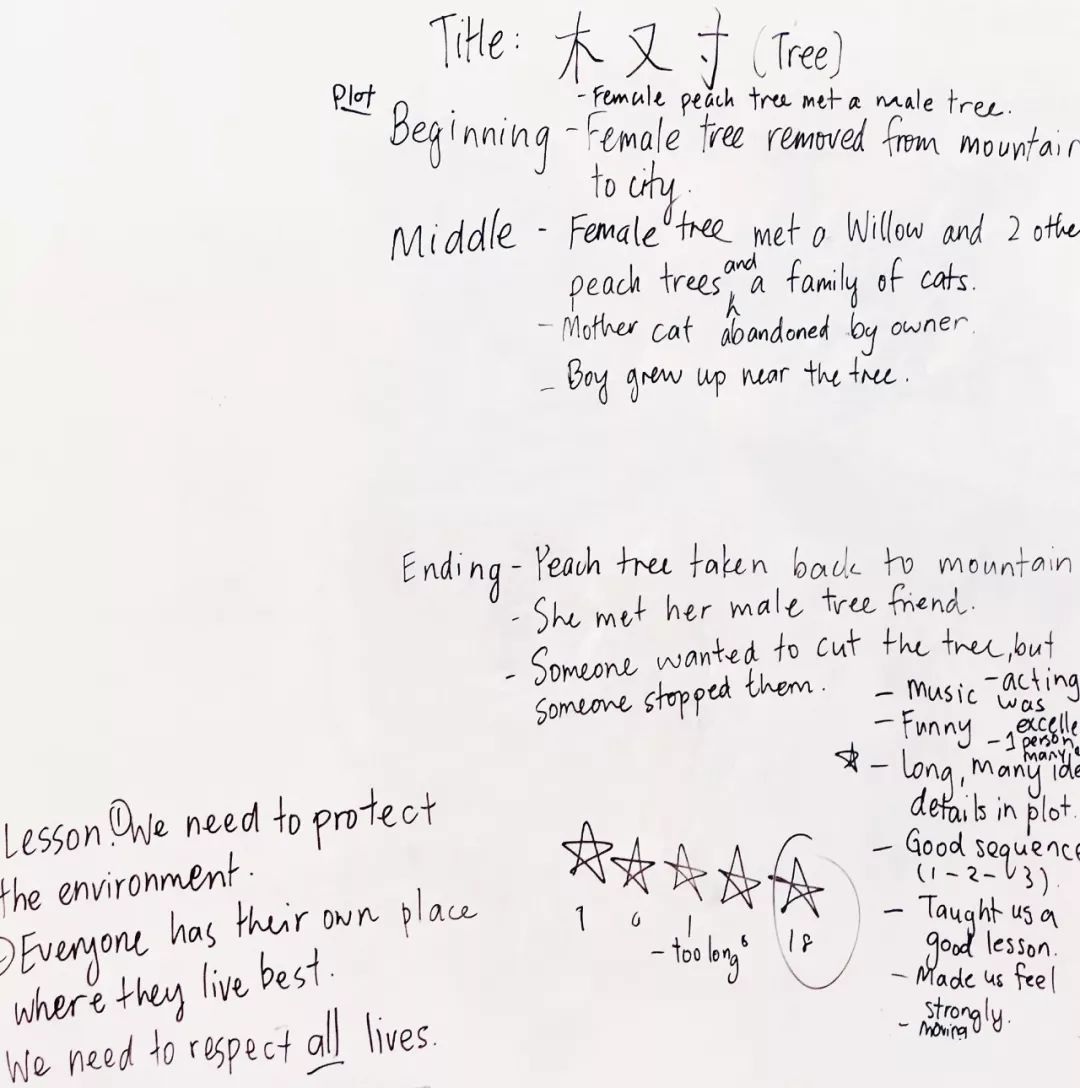 Title: 木 又 寸 (Tree)
Plot
- Female peach tree met a male tree.
Beginning - Female tree removed from mountain
to city.
Middle - Female tree met a Willow and 2 othe
peach trees and a family of cats.
- Mother cat abandoned by owner.
- Boy grew up near the tree.
Ending - Peach tree taken back to mountain
- She met her male tree friend.
- Someone wanted to cut the tree, but
someone stopped them.
- Music
- acting
was
excelle
- Funny
- 1 person
many
- Long, many ide
details in plot.
- Good sequence
(1-2-3).
- Taught us a
good lesson.
- Made us feel
strongly.
- moving
Lesson: ① We need to protect
the environment.
Everyone has their own place
where they live best.
We need to respect all lives.
1 0 1 6 18
- too long